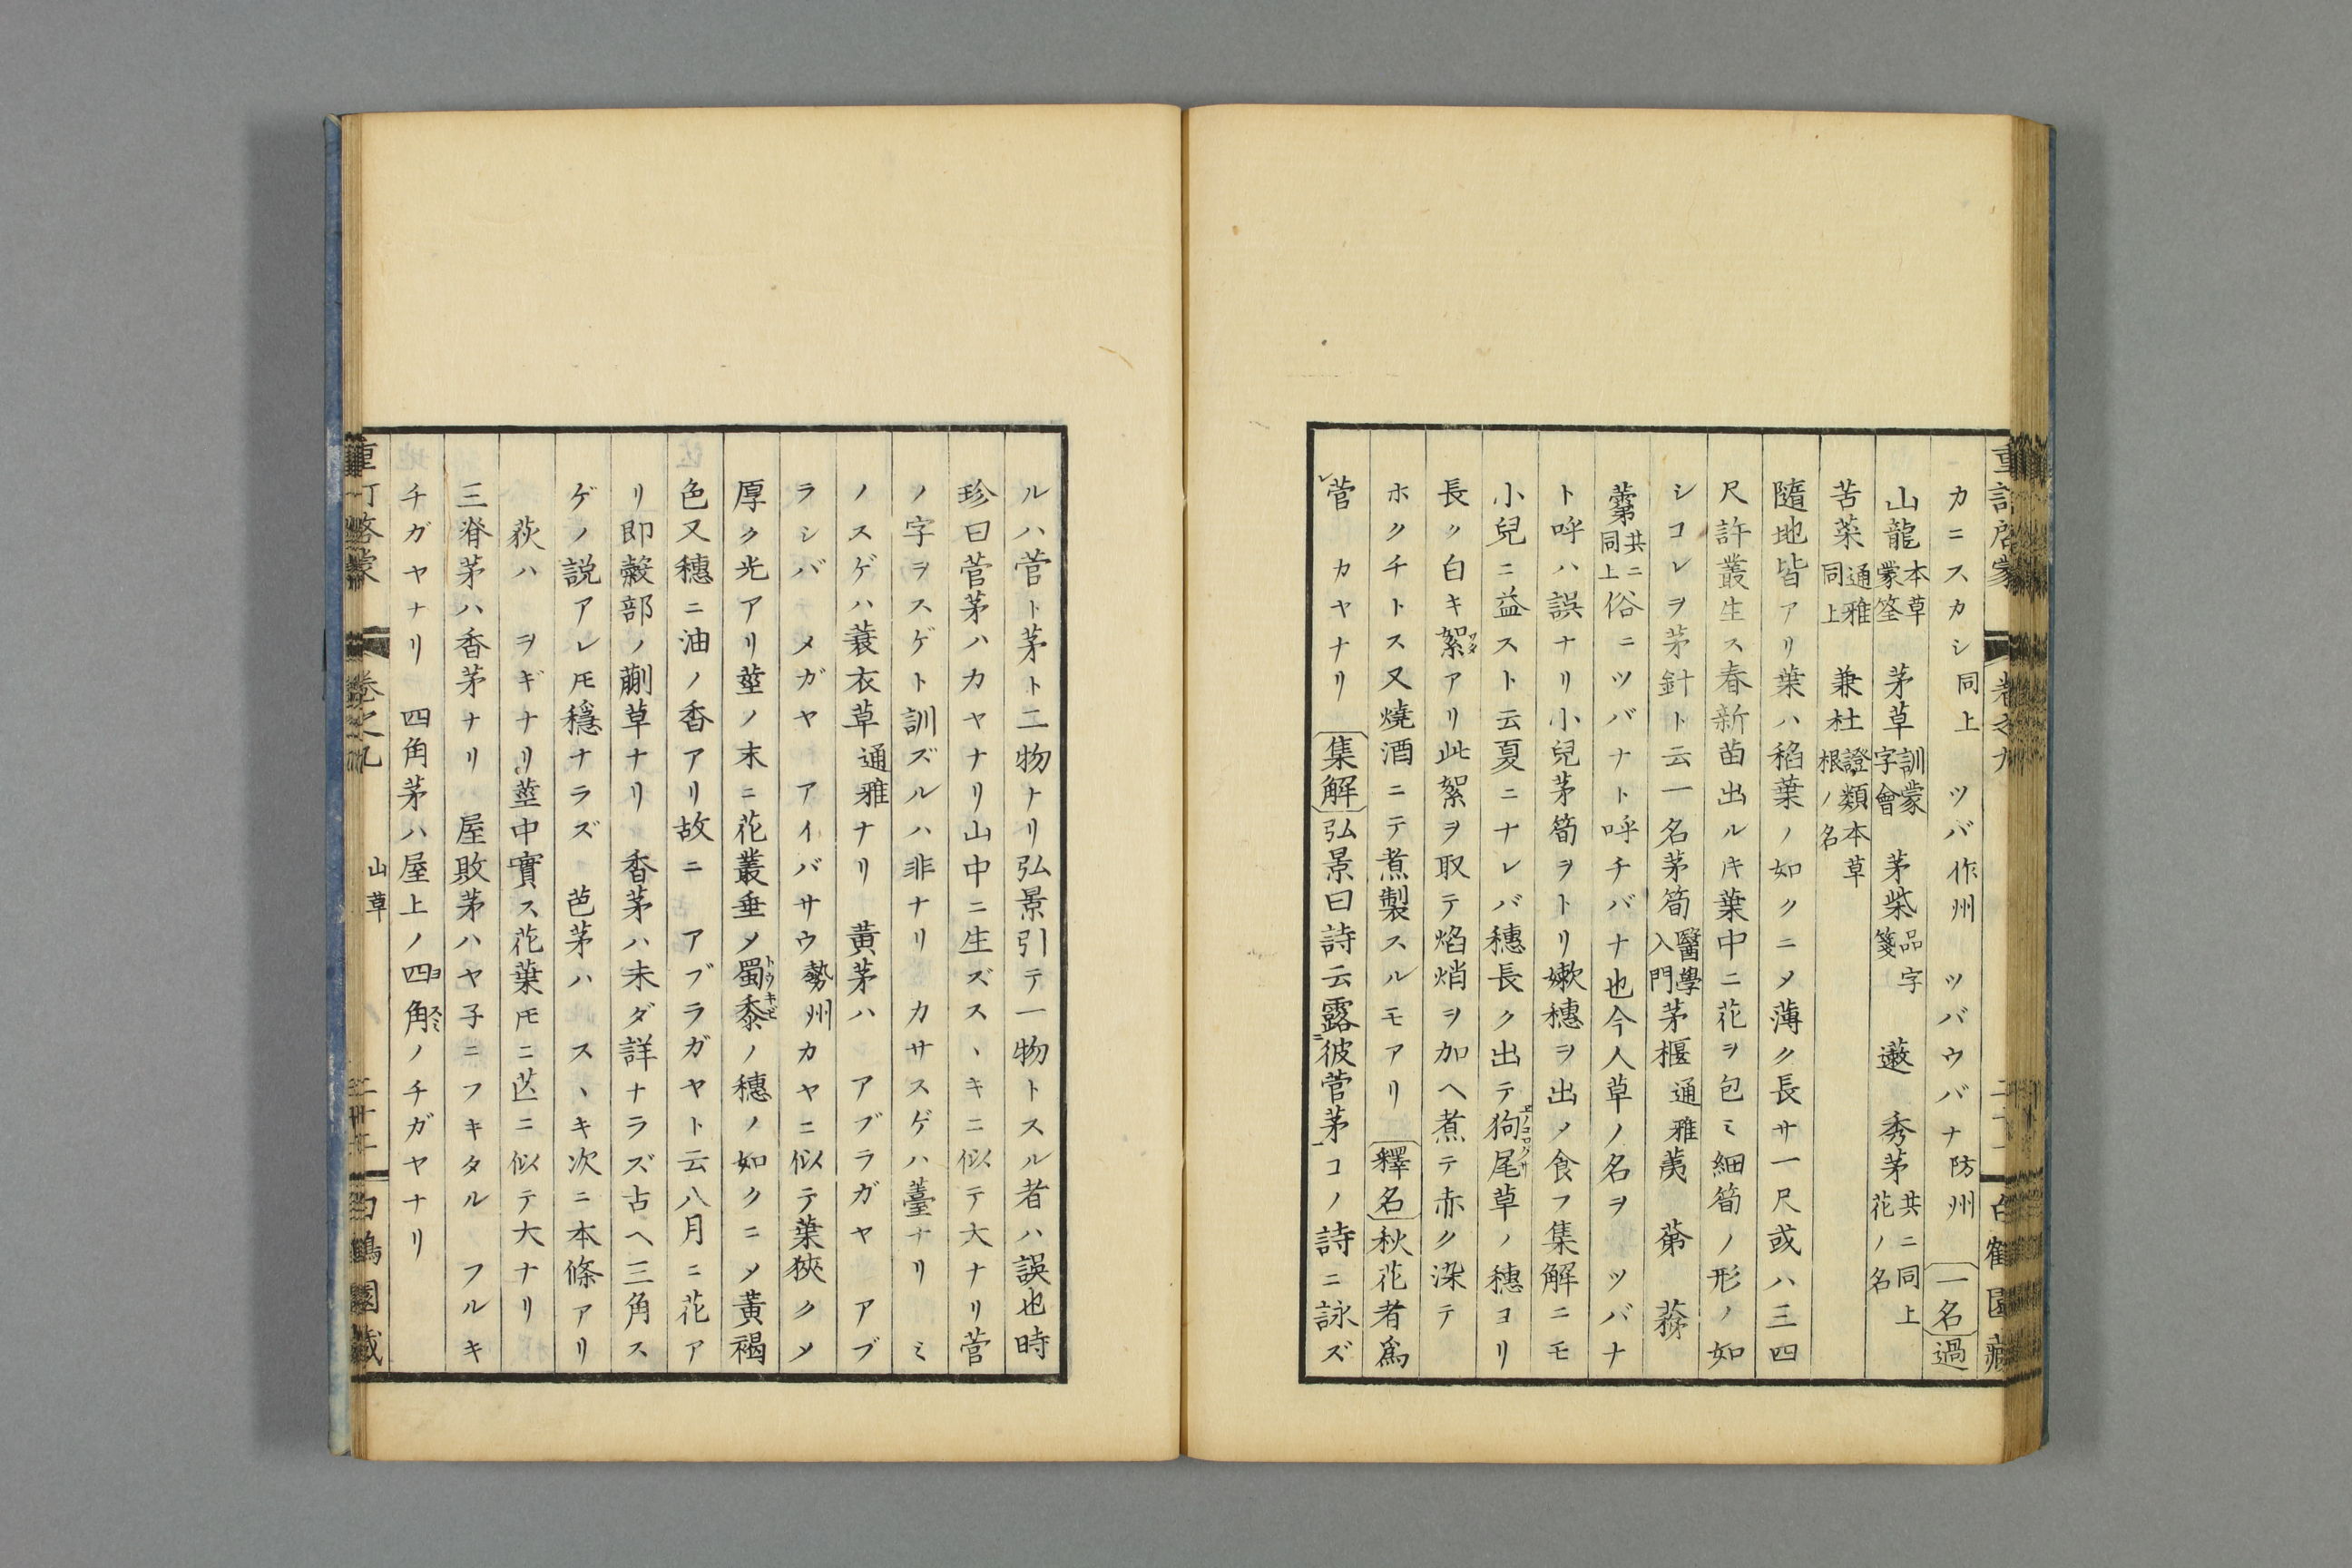 カニスカシ同上 ツバ作州 ツバウバナ防州 一名過
山龍本草蒙筌 茅草訓蒙字會 茅柴品字箋 蔜 秀茅共ニ同上花ノ名
苦菜通雅同上 兼杜證類本草根ノ名
隨地皆アリ葉ハ稻葉ノ如クニ〆薄ク長サ一尺或ハ三四
尺許叢生ス春新苗出ルキ葉中ニ花ヲ包ミ細筍ノ形ノ如
シコレヲ茅針ト云一名茅筍醫學入門茅椻通雅荑 蕛 蓚
共ニ同上俗ニツバナト呼チバナ也今人草ノ名ヲツバナ
ト呼ハ誤ナリ小兒茅筍ヲトリ嫰穗ヲ出〆食フ集解ニモ
小兒ニ益スト云夏ニナレバ穗長ク出テ狗尾草ノ穗ヨリ
長ク白キ絮アリ此絮ヲ取テ焰焇ヲ加ヘ煮テ赤ク染テ
ホクチトス又燒酒ニテ煮製スルモアリ 釋名秋花者爲
菅 カヤナリ 集解弘景曰詩云露彼菅茅コノ詩ニ詠ズ
重訂啓蒙 卷之九 白鶴園藏
ルハ菅ト茅ト二物ナリ弘景引テ一物トスル者ハ誤也時
珍曰菅茅ハカヤナリ山中ニ生ズスヽキニ似テ大ナリ菅
ノ字ヲスゲト訓ズルハ非ナリ カサスゲハ薹ナリ ミ
ノスゲハ蓑衣草通雅ナリ 黄茅ハ アブラガヤ アブ
ラシバ メガヤ アイバサウ勢州カヤニ似テ葉狹ク〆
厚ク光アリ莖ノ末ニ花叢垂〆蜀黍ノ穗ノ如クニ〆黄褐
色又穗ニ油ノ香アリ故ニ アブラガヤト云八月ニ花ア
リ即穀部ノ蒯草ナリ 香茅ハ未ダ詳ナラズ古ヘ三角ス
ゲノ説アレ𪜈穩ナラズ 芭茅ハ スヽキ次ニ本條アリ
荻ハ ヲギナリ莖中實ス花葉𪜈ニ芒ニ似テ大ナリ
三脊茅ハ香茅ナリ 屋敗茅ハヤ子ニフキタル フルキ
チガヤナリ 四角茅ハ屋上ノ四角ノチガヤナリ
重訂啓蒙 卷之九 山草 白鶴園藏